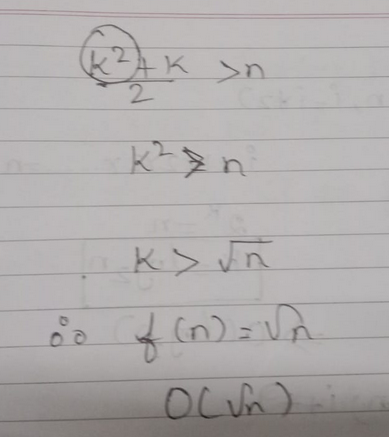 k²+k / 2 > n
k² > n
k > √n
∴ f(n) = √n
O(√n)